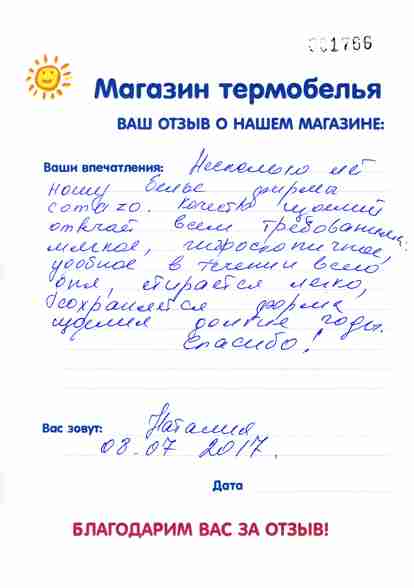 001766
Магазин термобелья
ВАШ ОТЗЫВ О НАШЕМ МАГАЗИНЕ:
Ваши впечатления: Несколько лет
ношу белье фирмы
comazo. Качество изделий
отвечает всем требованиям:
мягкое, гигроскопичное,
удобное в течении всего
дня, стирается легко,
сохраняется форма
изделия долгие годы.
Спасибо!
Вас зовут: Наталия
08.07 2017.
Дата
БЛАГОДАРИМ ВАС ЗА ОТЗЫВ!